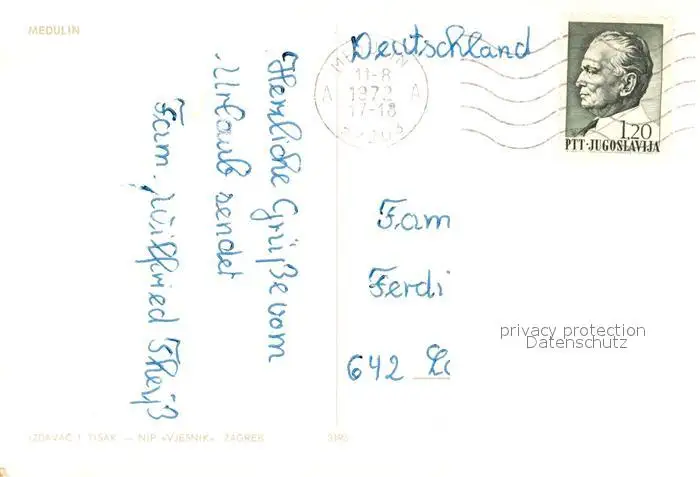 MEDULIN
Herzliche Grüße vom
Urlaub sendet
Fam. Wilfried
Deutschland
MEDULIN
11-8
1972
17-18
A A
1,20
PTT-JUGOSLAVIJA
Fam
Ferdi
642
privacy protection
Datenschutz
IZDAVAČ I TISAK — NIP «VJESNIK» ZAGREB